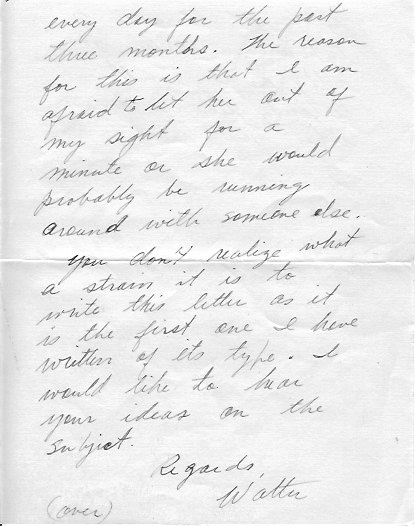 every day for the past
three months. The reason
for this is that I am
afraid to let her out of
my sight for a
minute or she would
probably be running
around with someone else.
You don't realize what
a strain it is to
write this letter as it
is the first one I have
written of its type. I
would like to hear
your ideas on the
subject.
Regards,
Walter
(over)